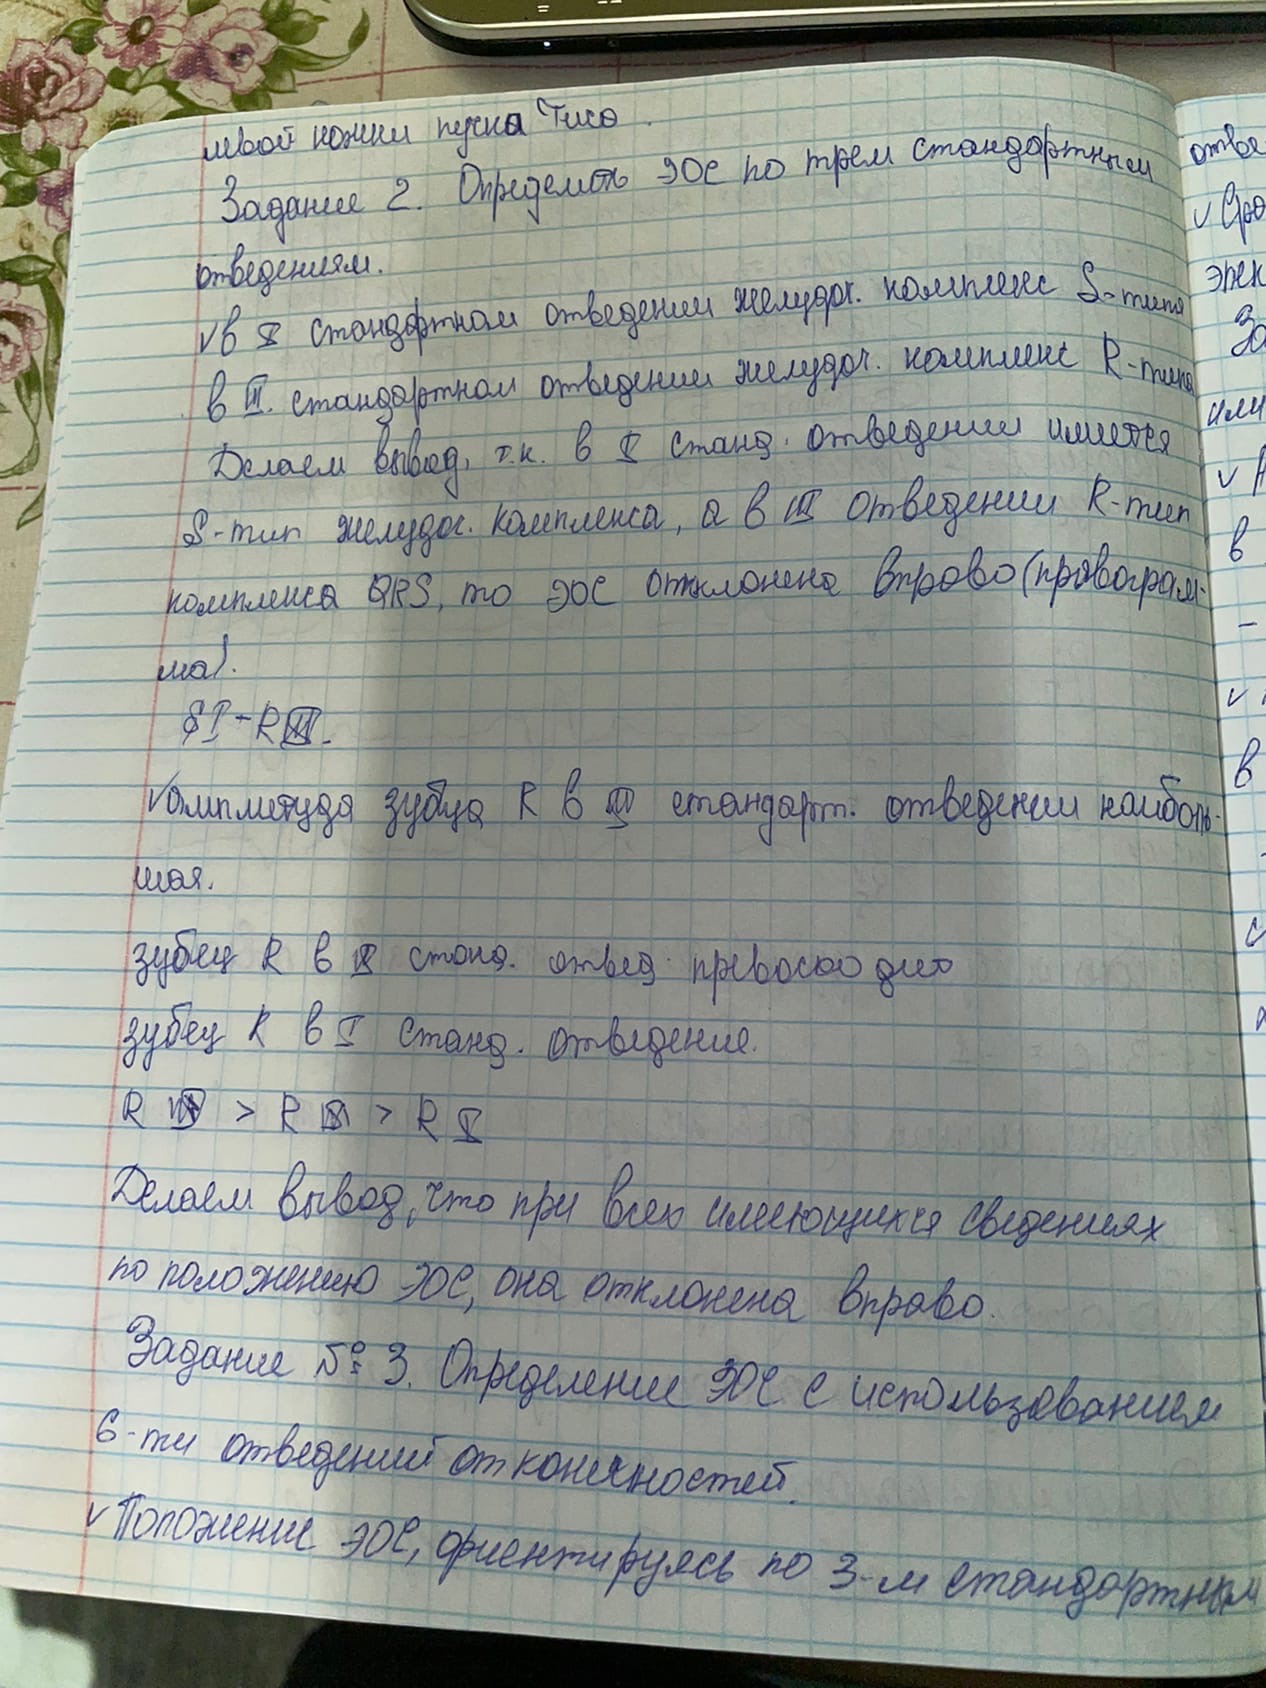 левой ножки пучка Гиса.
Задание 2. Определить ЭОС по трем стандартным
отведениям.
√ в I стандартном отведении желудоч. комплекс S-типа
в III. стандартном отведении желудоч. комплекс R-типа
Делаем вывод, т.к. в I станд. отведении имеется
S-тип желудоч. комплекса, а в III отведении R-тип
комплекса QRS, то ЭОС отклонена вправо (правограм-
ма).
SI-RIII.
√ амплитуда зубца R в III стандарт. отведении наиболь-
шая.
зубец R в II станд. отвед. превосходит
зубец R в I станд. отведение.
R III > R II > R I
Делаем вывод, что при всех имеющихся сведениях
по положению ЭОС, она отклонена вправо.
Задание № 3. Определение ЭОС с использованием
6-ти отведений от конечностей.
√ Положение ЭОС, ориентируясь по 3-м стандартным
отве
√ Сро
За
или
√
в
-
√
в